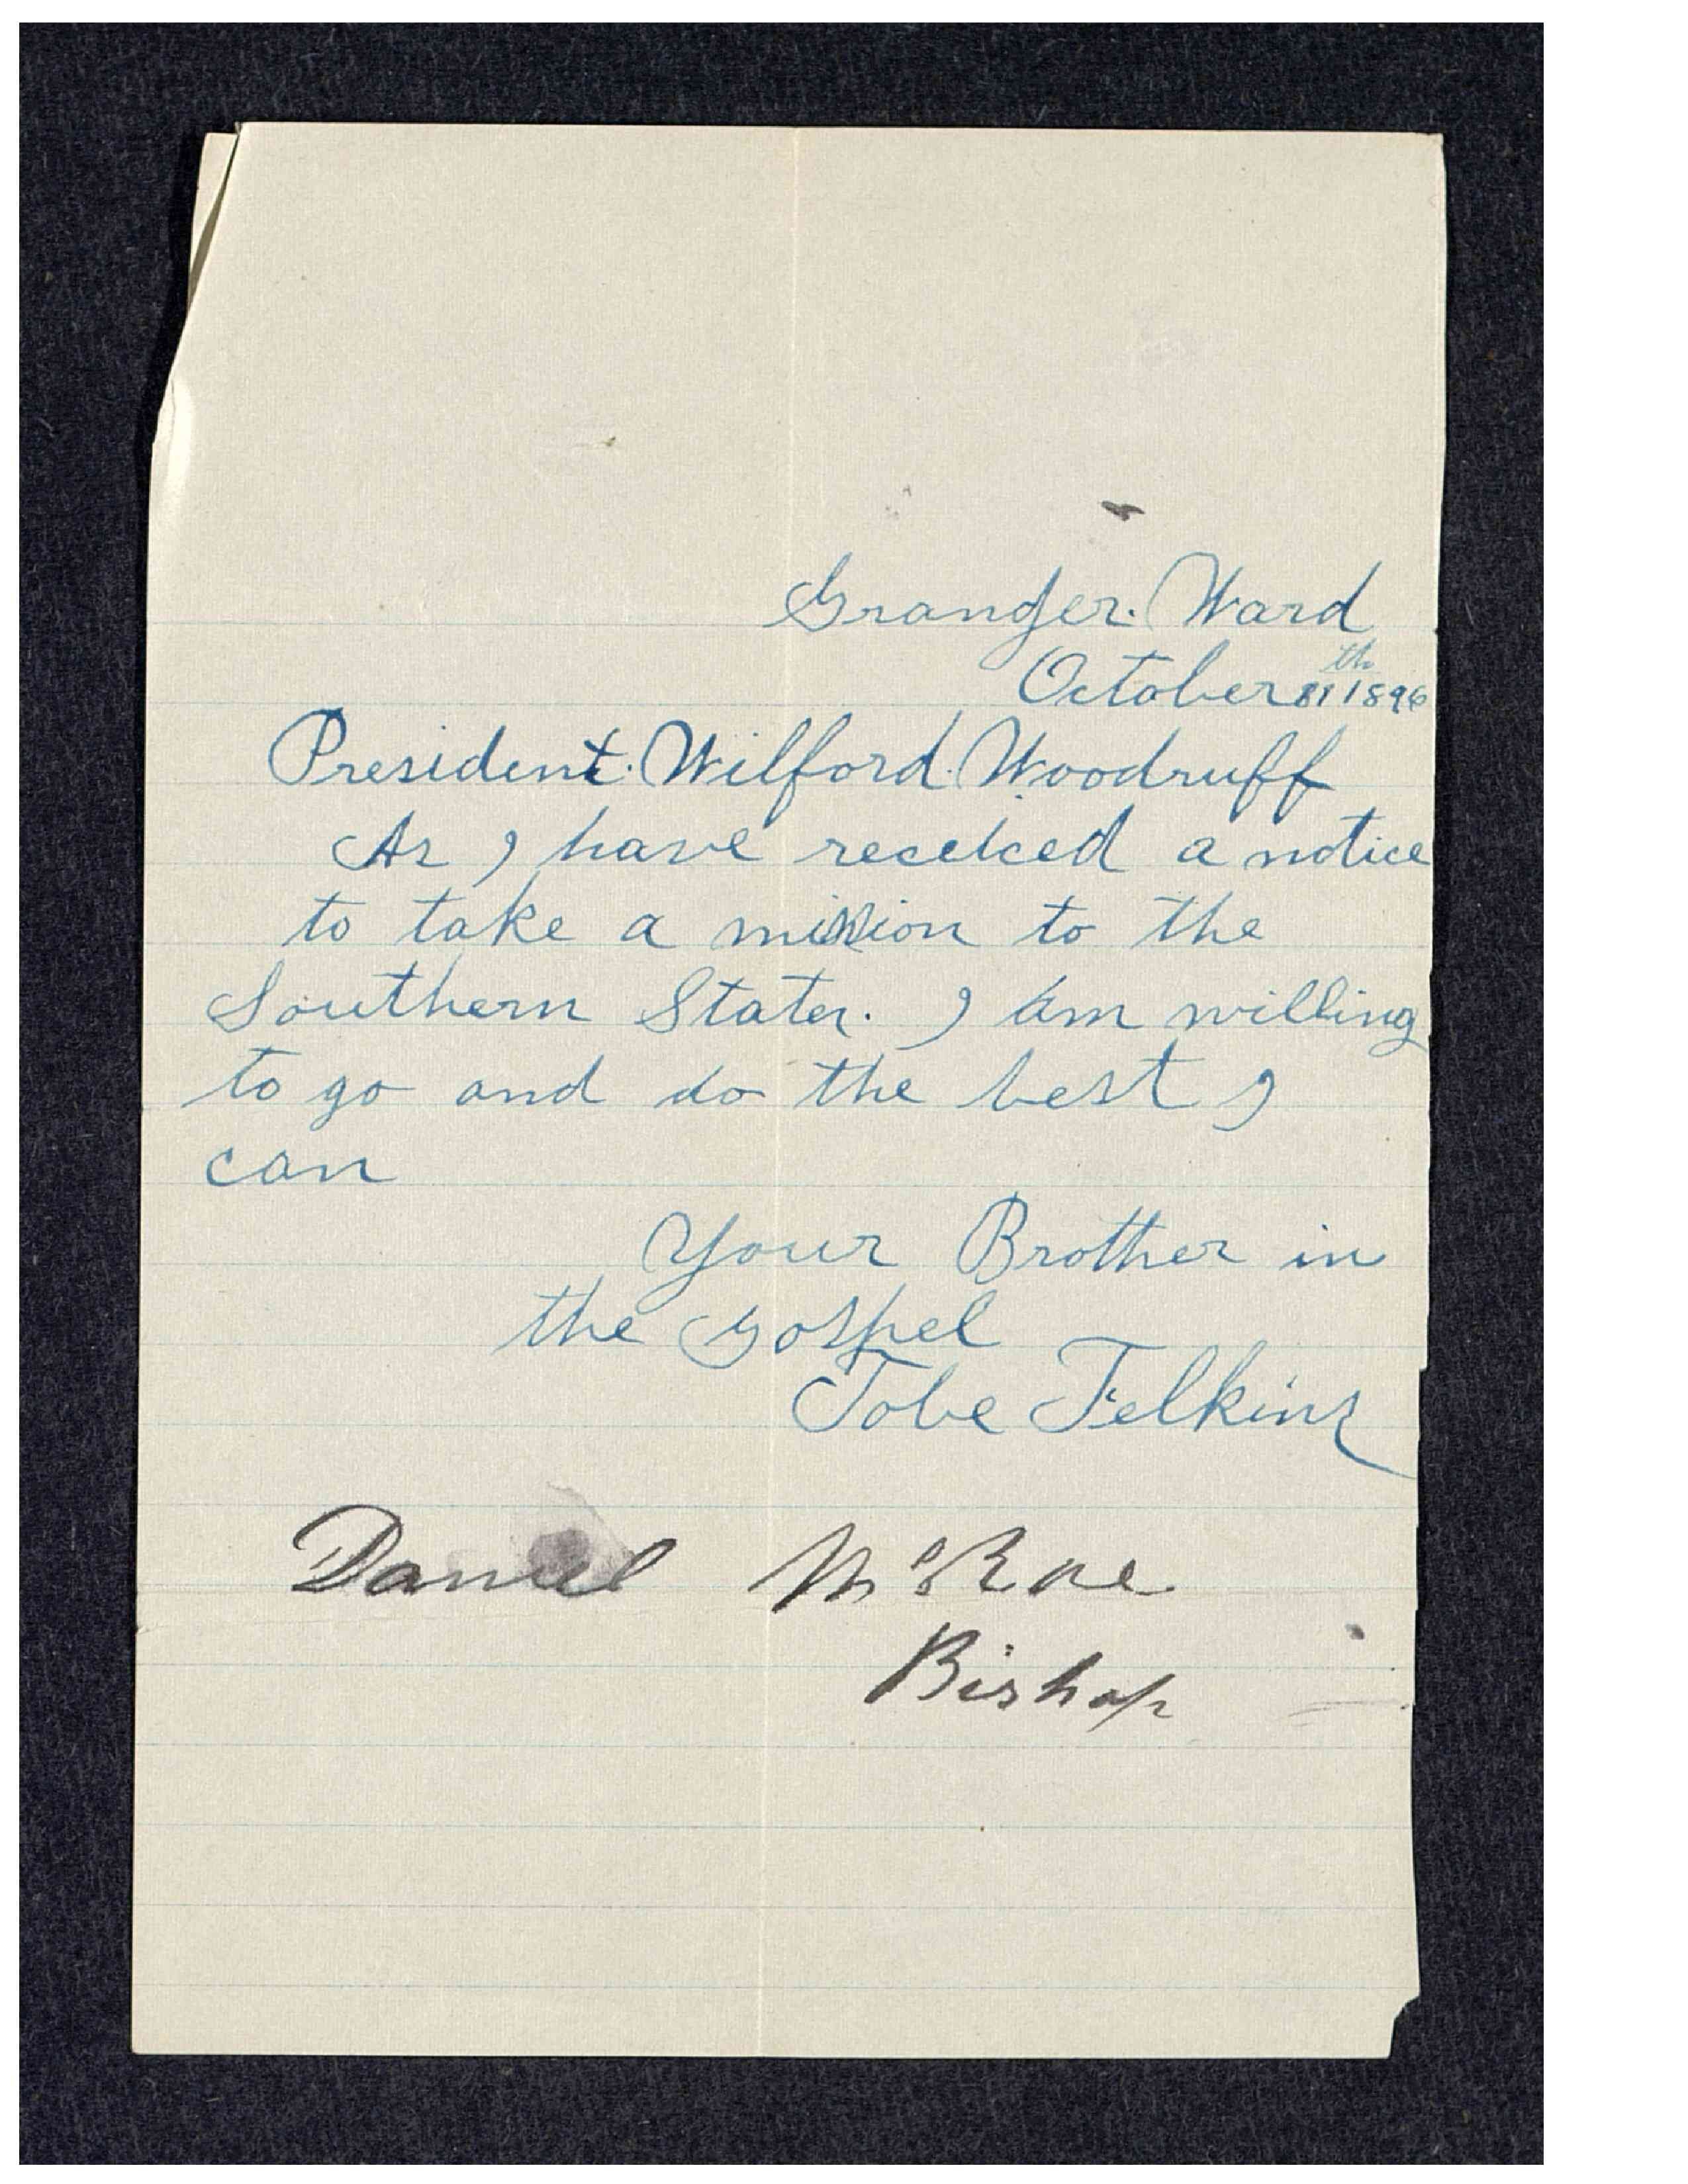 Granger. Ward
October 11th 1896
President. Wilford. Woodruff
As I have receiced a notice
to take a mission to the
Southern States. I am willing
to go and do the best I
can
Your Brother in
the gospel
Tobe Felkins
Daniel McRae
Bishop